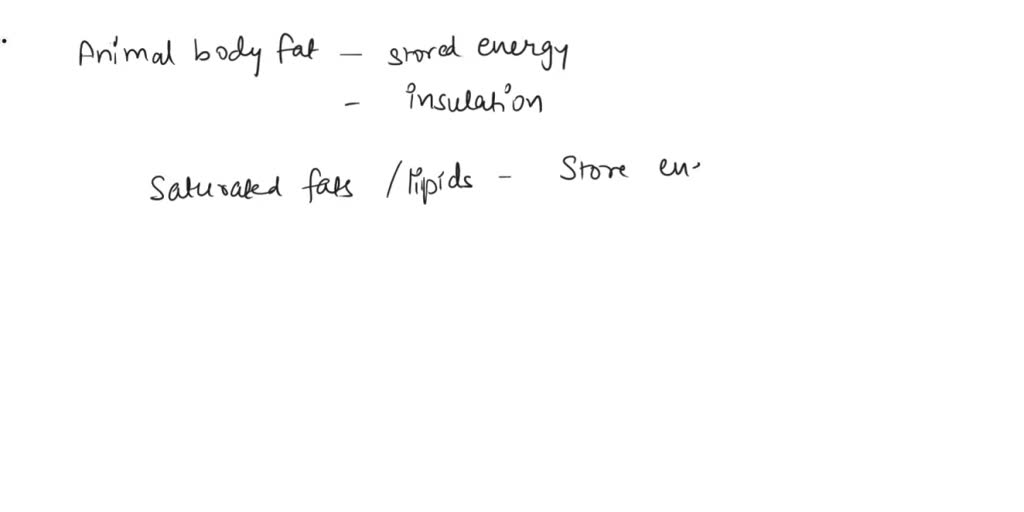 Animal body fat – stored energy
– insulation
Saturated fats / lipids – Store en